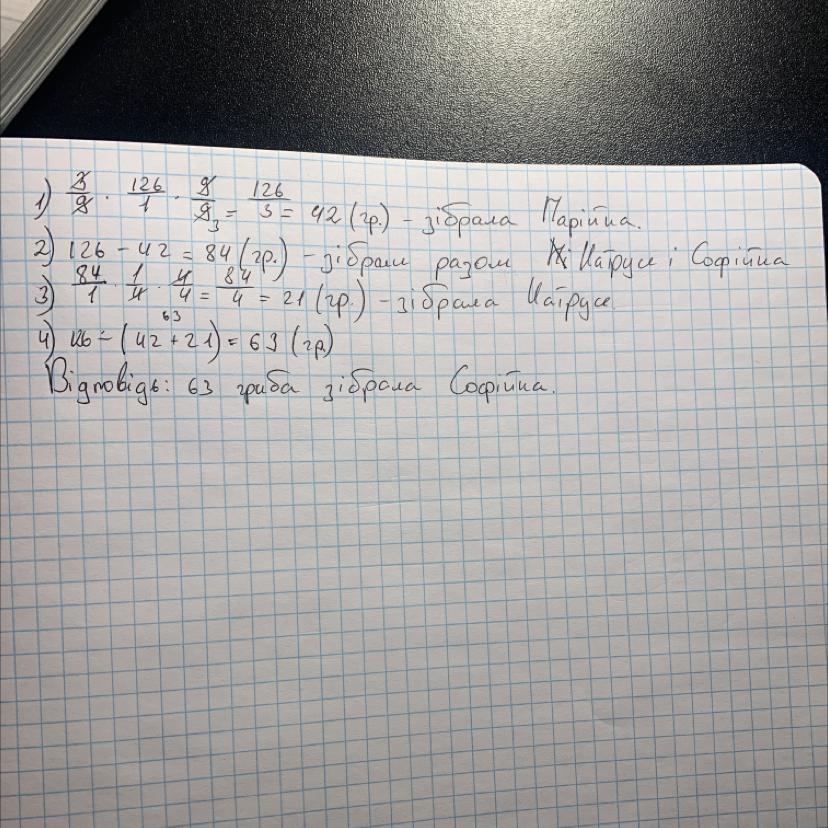 1) 3/9 · 126/1 · 9/9 3 = 126/3 = 42 (гр.) – зібрала Марійка.
2) 126 – 42 = 84 (гр.) – зібрали разом і Катруся і Софійка
3) 84/1 · 1/4 · 4/4 = 84/4 = 21 (гр.) – зібрала Катруся.
63
4) 126 – (42 + 21) = 63 (гр)
Відповідь: 63 гриба зібрала Софійка.